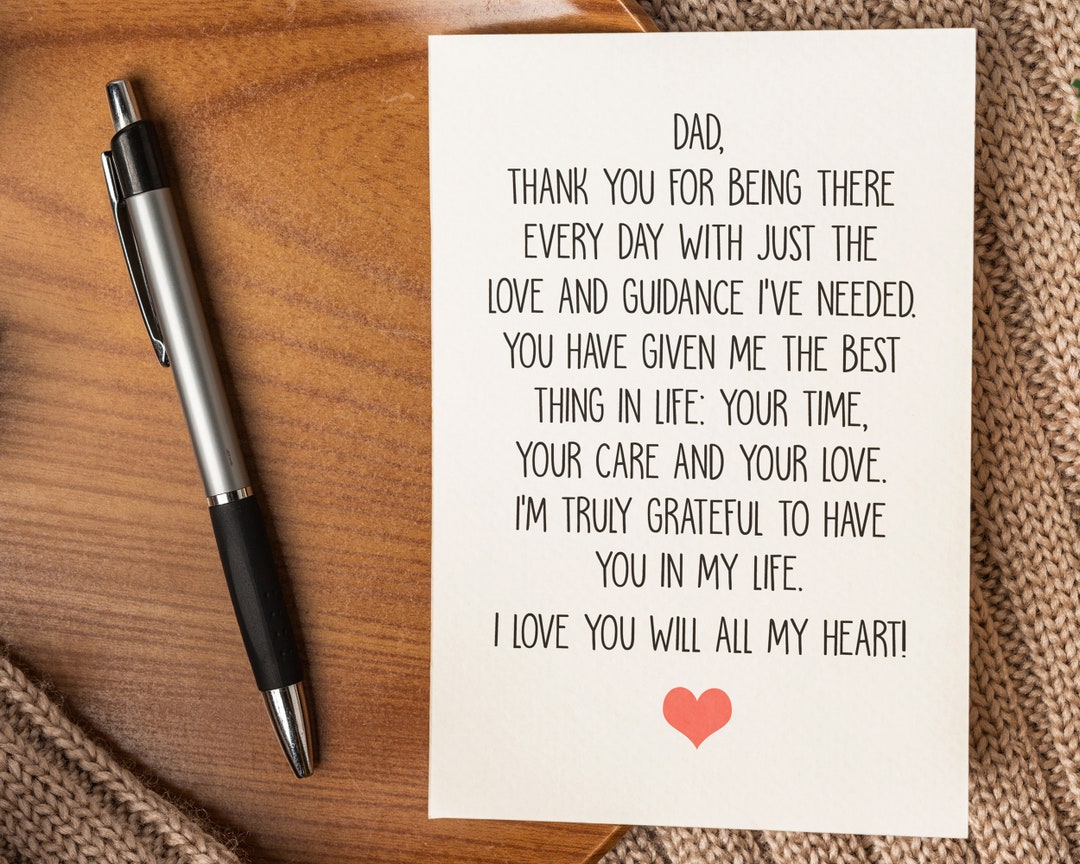 DAD,
THANK YOU FOR BEING THERE
EVERY DAY WITH JUST THE
LOVE AND GUIDANCE I'VE NEEDED.
YOU HAVE GIVEN ME THE BEST
THING IN LIFE: YOUR TIME,
YOUR CARE AND YOUR LOVE.
I'M TRULY GRATEFUL TO HAVE
YOU IN MY LIFE.
I LOVE YOU WILL ALL MY HEART!